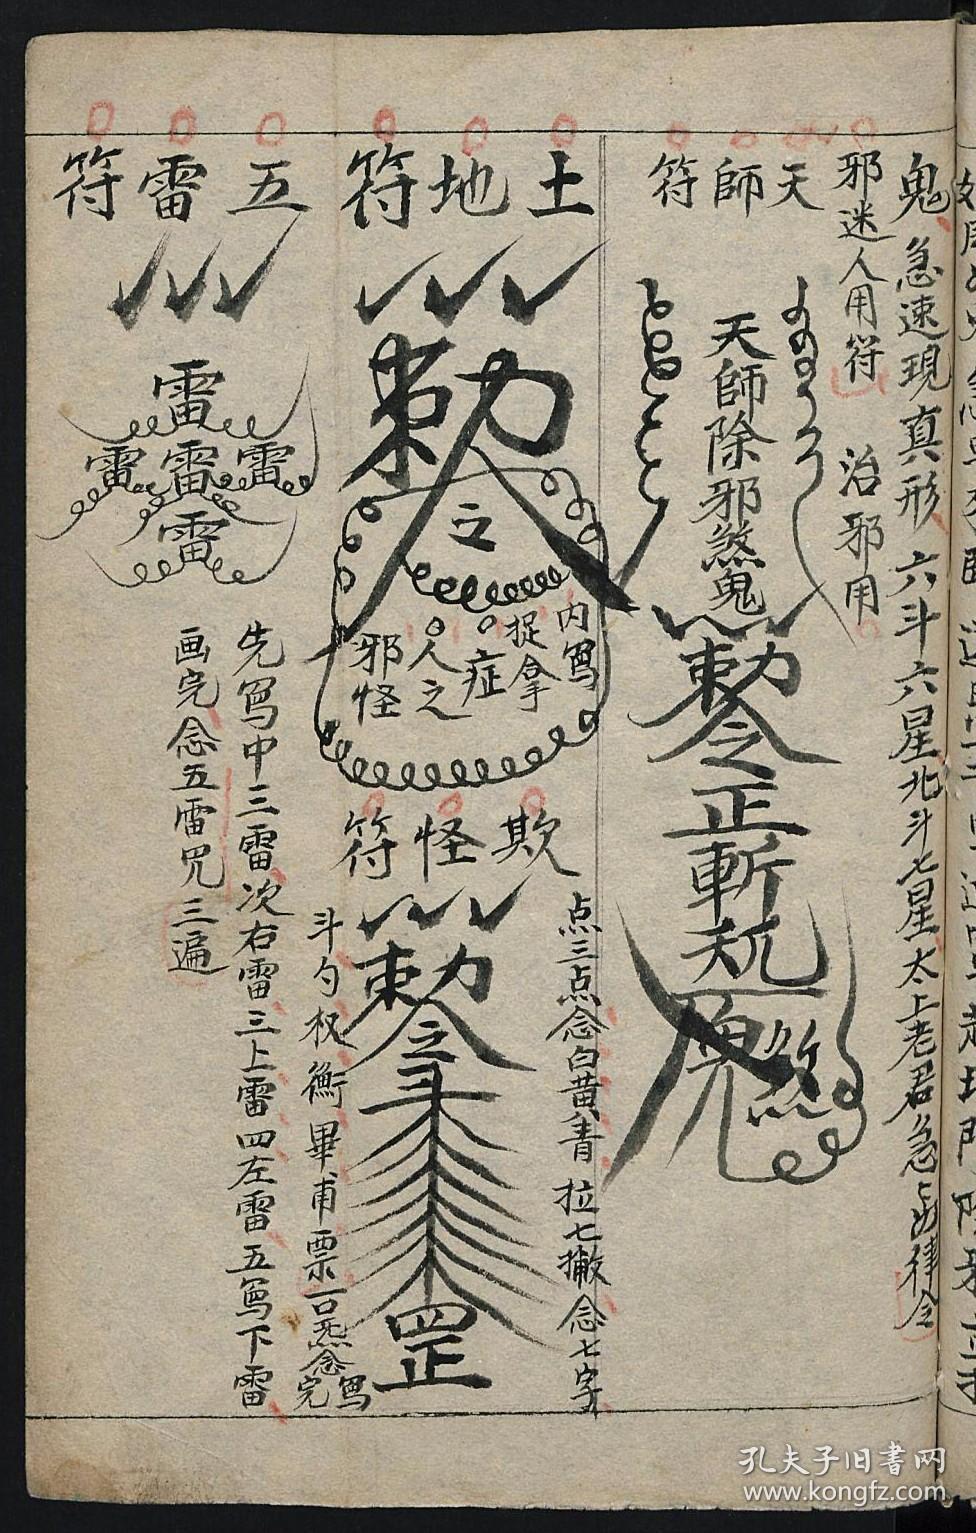 鬼急速現真形六斗六星北斗七星太上老君急急律令
邪迷人用符 治邪用
天師符
天師除邪煞鬼
勅令正斬
煞
土地符
勅令
内寫
捉拿
症
人之
邪怪
欺怪符
点三点念白黄青 拉七撇念七字
勅令
罡
斗勺权衡畢甫票
寫
念完
五雷符
雷
雷雷雷
雷
先寫中三雷次右雷三上雷四左雷五寫下雷
画完念五雷咒三遍
孔夫子旧书网
www.kongfz.com